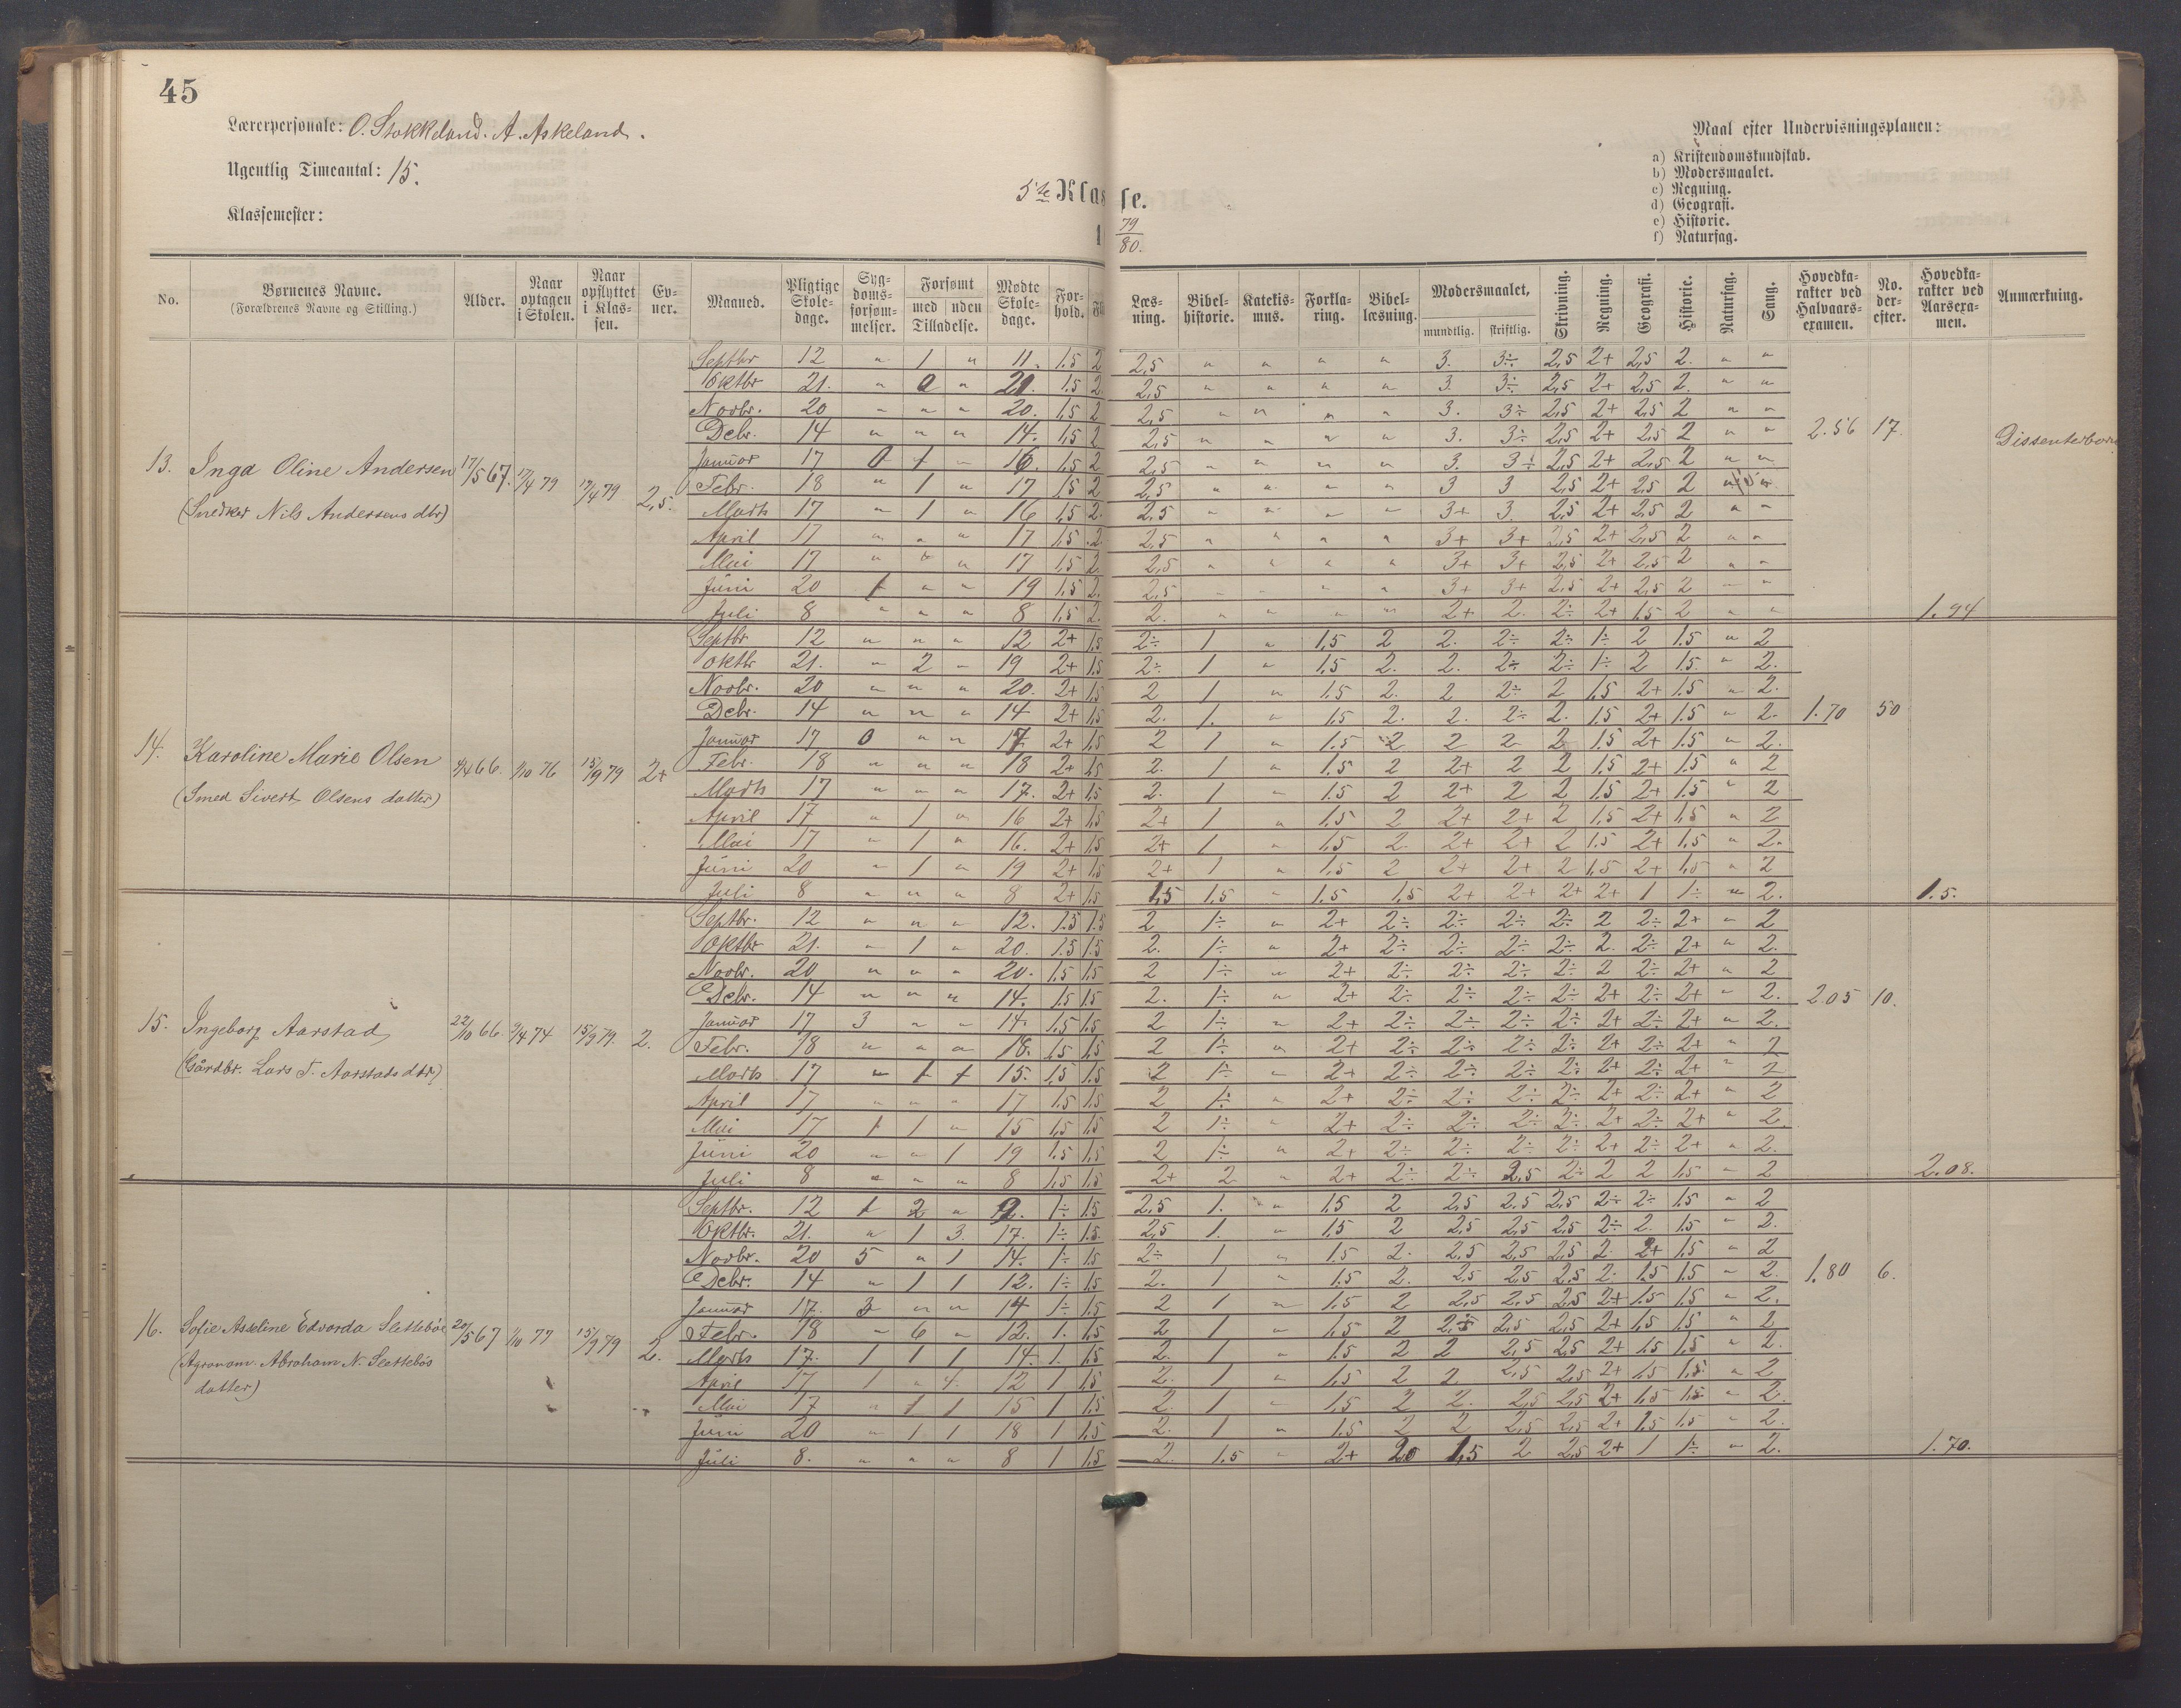 45
Lærerpersonale: O. Stokkeland. A. Askeland.
Ugentlig Timeantal: 15.
Klassemester:
5te Klasse.
1 79/80.
Maal efter Undervisningsplanen:
a) Kristendomskundskab.
b) Modersmaalet.
c) Regning.
d) Geografi.
e) Historie.
f) Naturfag.
No. | Børnenes Navne. (Forældrenes Navne og Stilling.) | Alder. | Naar optagen i Skolen. | Naar opflyttet i Klassen. | Evner. | Maaned. | Pligtige Skoledage. | Sygdomsforsømmelser. | Forsømt med uden Tilladelse. | Mødte Skoledage. | Forhold. | Læsning. | Bibelhistorie. | Katekismus. | Forklaring. | Bibellæsning. | Modersmaalet, mundtlig. skriftlig. | Skrivning. | Regning. | Geografi. | Historie. | Naturfag. | Sang. | Hovedkarakter ved Halvaarsexamen. | No. derefter. | Hovedkarakter ved Aarsexamen. | Anmærkning.
13. Inga Oline Andersen 17/5 67. 17/4 79 17/4 79 2,5.
(Snedker Nils Andersens dtr)
Septbr 12 " 1 " 11. 1.5 2 2,5 " " " " 3. 3÷ 2,5 2+ 2,5 2. " "
Oktbr 21. " 0 " 21. 1.5 2. 2,5 " " " " 3. 3÷ 2,5 2+ 2,5 2. " "
Novbr. 20 " " " 20. 1,5 2 2,5 " " " " 3. 3÷ 2,5 2+ 2,5 2 " "
Debr. 14 " " " 14. 1,5 2 2,5 " " " " 3. 3÷ 2,5 2+ 2,5 2 " " 2.56 17. Dissenterbarn
Januar 17 0 1 " 16. 1,5 2 2,5 " " " " 3. 3÷ 2,5 2+ 2,5 2 " "
Febr. 18 " 1 " 17 1,5 2 2,5 " " " " 3 3 2,5 2+ 2,5 2 " "
Marts 17 " 1 " 16 1,5 2. 2,5 " " " " 3+ 3. 2,5 2+ 2,5 2 " "
April 17 " " " 17 1,5 2 2,5 " " " " 3+ 3+ 2,5 2+ 2,5 2 " "
Mai 17 " " " 17 1,5 2. 2,5 " " " " 3+ 3+ 2,5 2+ 2,5 2 " "
Juni 20 1 " " 19 1,5 2. 2,5 " " " " 3+ 3+ 2,5 2+ 2,5 2 " "
Juli 8 " " " 8 1,5 2. 2. " " " " 2+ 2. 2÷ 2+ 1.5 2 " " 1.94
14. Karoline Marie Olsen 9/4 66. 1/10 76 15/9 79 2+
(Smed Sivert Olsens datter)
Septbr 12 " " " 12 2+ 1,5 2÷ 1 " 1,5 2 2. 2÷ 2÷ 1÷ 2 1.5 " 2
Oktbr 21. " 2 " 19 2+ 1,5 2÷ 1 " 1.5 2. 2. 2÷ 2÷ 1÷ 2 1.5 " 2.
Novbr. 20 " " " 20. 2+ 1,5 2 1 " 1.5 2. 2 2÷ 2 1.5 2+ 1.5 " 2.
Debr. 14 " " " 14 2+ 1,5 2. 1. " 1,5 2. 2. 2÷ 2. 1.5 2+ 1.5 " 2. 1.70 50
Januar 17 0 " " 17. 2+ 1,5 2 1 " 1.5 2 2 2 2 1.5 2+ 1.5 " 2.
Febr. 18 " " " 18 2+ 1,5 2. 1 " 1.5 2 2+ 2 2 1.5 2+ 1.5 " 2
Marts 17 " " " 17. 2+ 1.5 2. 1 " 1.5 2 2+ 2 2 1.5 2+ 1.5 " 2
April 17 " 1 " 16 2+ 1,5 2+ 1 " 1,5 2 2+ 2+ 2 1,5 2+ 1,5 " 2
Mai 17 " 1 " 16. 2+ 1,5 2+ 1 " 1,5 2. 2+ 2+ 2 1.5 2+ 1,5 " 2.
Juni 20 " 1 " 19 2+ 1,5 2+ 1 " 1,5 2 2+ 2+ 2 1,5 2+ 1,5 " 2
Juli 8 " " " 8 2+ 1,5 1,5 1,5 " 1.5 1,5 2+ 2+ 2+ 2+ 1 1÷ " 2. 1.5.
15. Ingeborg Aarstad 22/10 66 9/4 74 15/9 79. 2.
(Gårdbr. Lars T. Aarstads dtr)
Septbr. 12 " " " 12. 1.5 1.5 2 1÷ " 2+ 2÷ 2÷ 2÷ 2÷ 2 2÷ 2+ " 2
Oktbr 21. " 1 " 20. 1.5 1.5 2. 1÷ " 2+ 2÷ 2÷ 2÷ 2÷ 2. 2÷ 2+ " 2.
Novbr. 20 " " " 20. 1,5 1,5 2 1÷ " 2+ 2÷ 2÷ 2÷ 2÷ 2 2÷ 2+ " 2
Debr. 14 " " " 14. 1.5 1.5 2. 1÷ " 2+ 2÷ 2÷ 2÷ 2÷ 2+ 2÷ 2+ " 2. 2.05 10.
Januar 17 3 " " 14. 1.5 1.5 2 1÷ " 2+ 2÷ 2÷ 2÷ 2÷ 2+ 2÷ 2+ " 2.
Febr. 18 " " " 18. 1,5 1,5 2 1÷ " 2+ 2÷ 2÷ 2÷ 2÷ 2+ 2÷ 2+ " 2
Marts 17 " 1 1 15. 1,5 1.5 2 1÷ " 2+ 2÷ 2÷ 2÷ 2÷ 2+ 2÷ 2+ " 2
April 17 " " " 17 1.5 1.5 2 1÷ " 2+ 2÷ 2÷ 2÷ 2÷ 2+ 2÷ 2+ " 2
Mai 17 1 1 " 15 1,5 1,5 2 1÷ " 2+ 2÷ 2÷ 2÷ 2÷ 2+ 2÷ 2+ " 2.
Juni 20 " " 1 19 1.5 1,5 2 1÷ " 2+ 2÷ 2÷ 2÷ 2÷ 2+ 2÷ 2+ " 2.
Juli 8 " " " 8 1,5 1,5 2+ 2 " 2+ 2÷ 2÷ 2,5 2÷ 2 2 1.5 " 2 2.08.
16. Sofie Asseline Edvarda Slettebøe 20/5 67 1/10 77 15/9 79 2.
(Agronom. Abraham N. Slettebös
datter)
Septbr. 12 1 2 " 9. 1÷ 1.5 2,5 1. " 1,5 2 2,5 2.5 2,5 2÷ 2÷ 1.5 " 2
Oktbr. 21. " 1 3. 17. 1÷ 1.5. 2,5 1. " 1,5 2 2,5 2,5 2,5 2÷ 2. 1.5 " 2.
Novbr. 20 5 " 1 14. 1÷ 1.5 2÷ 1 " 1.5 2. 2.5 2,5 2,5 2. 2+ 1,5 " 2
Debr. 14 " 1 1 12. 1÷ 1.5 2. 1 " 1.5 2. 2,5 2,5 2,5 2. 1.5 1.5 " 2. 1.80 6.
Januar 17. 3 " " 14 1÷ 1.5 2 1 " 1.5 2 2,5 2,5 2,5 2+ 1.5 1.5 " 2.
Febr. 18 " 6 " 12. 1. 1,5 2 1 " 1,5 2 2,5 2,5 2,5 2+ 1,5 1,5 " 2
Marts 17. 1 1 1 14. 1. 1,5 2. 1 " 1.5 2 2 2,5 2,5 2+ 1.5 1,5 " 2.
April 17 1 " 4. 12 1 1,5 2. 1 " 1,5 2 2. 2,5 2,5 2+ 1.5 1.5 " 2
Mai 17 " 1 1 15 1 1,5 2. 1 " 1,5 2 2. 2,5 2,5 2+ 1,5 1,5 " 2.
Juni 20 " 1 1 18 1 1,5 2. 1 " 1,5 2 2 2,5 2,5 2+ 1.5 1.5 " 2.
Juli 8. " " " 8 1 1,5 2. 1.5 " 2+ 2,0 1,5 2 2,5 2+ 1 1÷ " 2. 1.70.